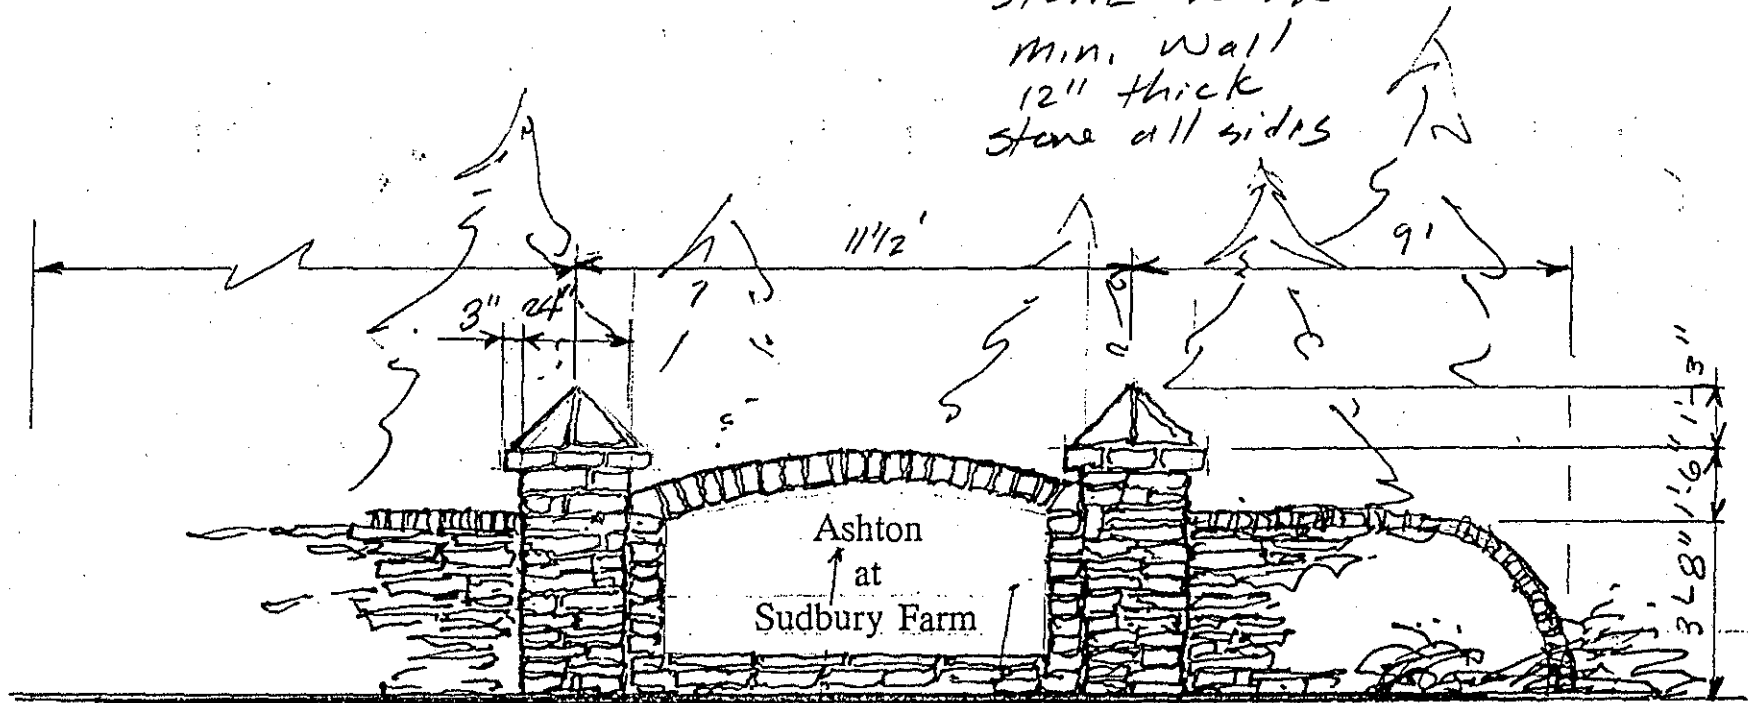 min. wall
12" thick
stone all sides
11 1/2'
9'
3" 24"
1'-3"
1'-6"
3'-8"
Ashton
at
Sudbury Farm